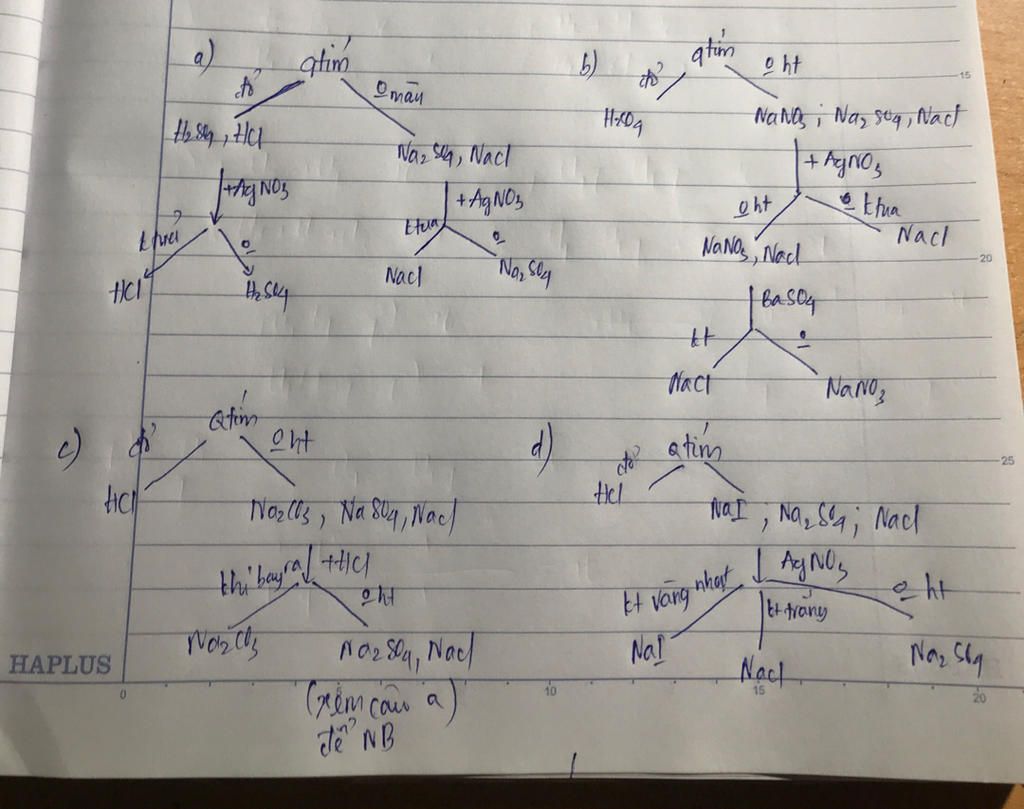 a) qtím
đỏ o màu
H2SO4, HCl
Na2SO4, NaCl
+AgNO3
+AgNO3
ktủa o
HCl
H2SO4
ktủa o
NaCl
Na2SO4
b) qtím
đỏ o ht
H2SO4
NaNO3; Na2SO4, NaCl
+ AgNO3
o ht
ktủa
NaNO3, NaCl
NaCl
BaSO4
kt o
NaCl
NaNO3
c) Qtím
đỏ o ht
HCl
Na2CO3, NaSO4, NaCl
khí bay ra +HCl
o ht
Na2CO3
Na2SO4, NaCl
(xem câu a)
để NB
d) Qtím
đỏ
HCl
NaI; Na2SO4; NaCl
AgNO3
kt vàng nhạt
kt trắng
o ht
NaI
NaCl
Na2SO4
HAPLUS
0 5 10 15 20
15
20
25